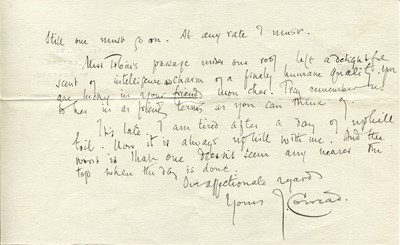 Still one must go on. At any rate I must.
Miss Tobin's passage under our roof left a delightful
scent of intelligence & charm of a finely humane quality. You
are lucky in your friend mon cher. Pray remember us
to her in as friendly terms as you can think of.
It is late. I am tired after a day of uphill
toil. Now it is always uphill with me. And the
worst is that one doesn't seem any nearer the
top when the day is done.
Our affectionate regard
Yours J. Conrad.